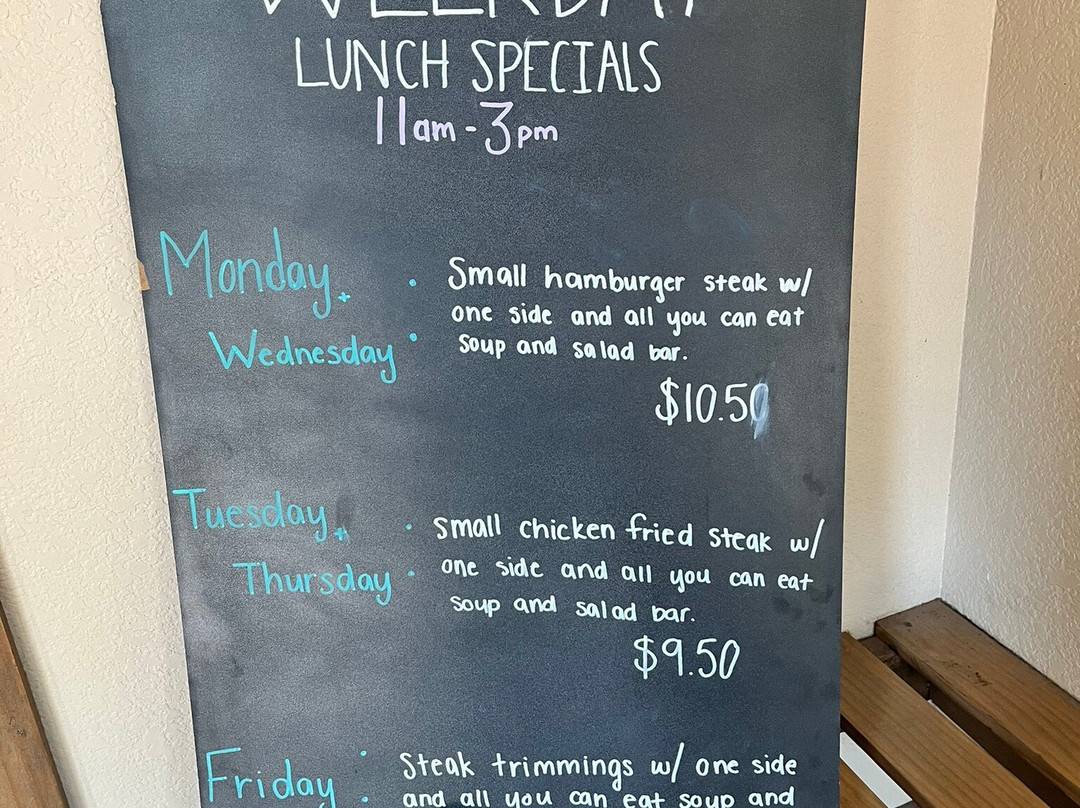 WEEKDAY
LUNCH SPECIALS
11am-3pm
Monday +
Wednesday :
Small hamburger steak w/
one side and all you can eat
soup and salad bar.
$10.50
Tuesday +
Thursday :
small chicken fried steak w/
one side and all you can eat
soup and salad bar.
$9.50
Friday :
Steak trimmings w/ one side
and all you can eat soup and